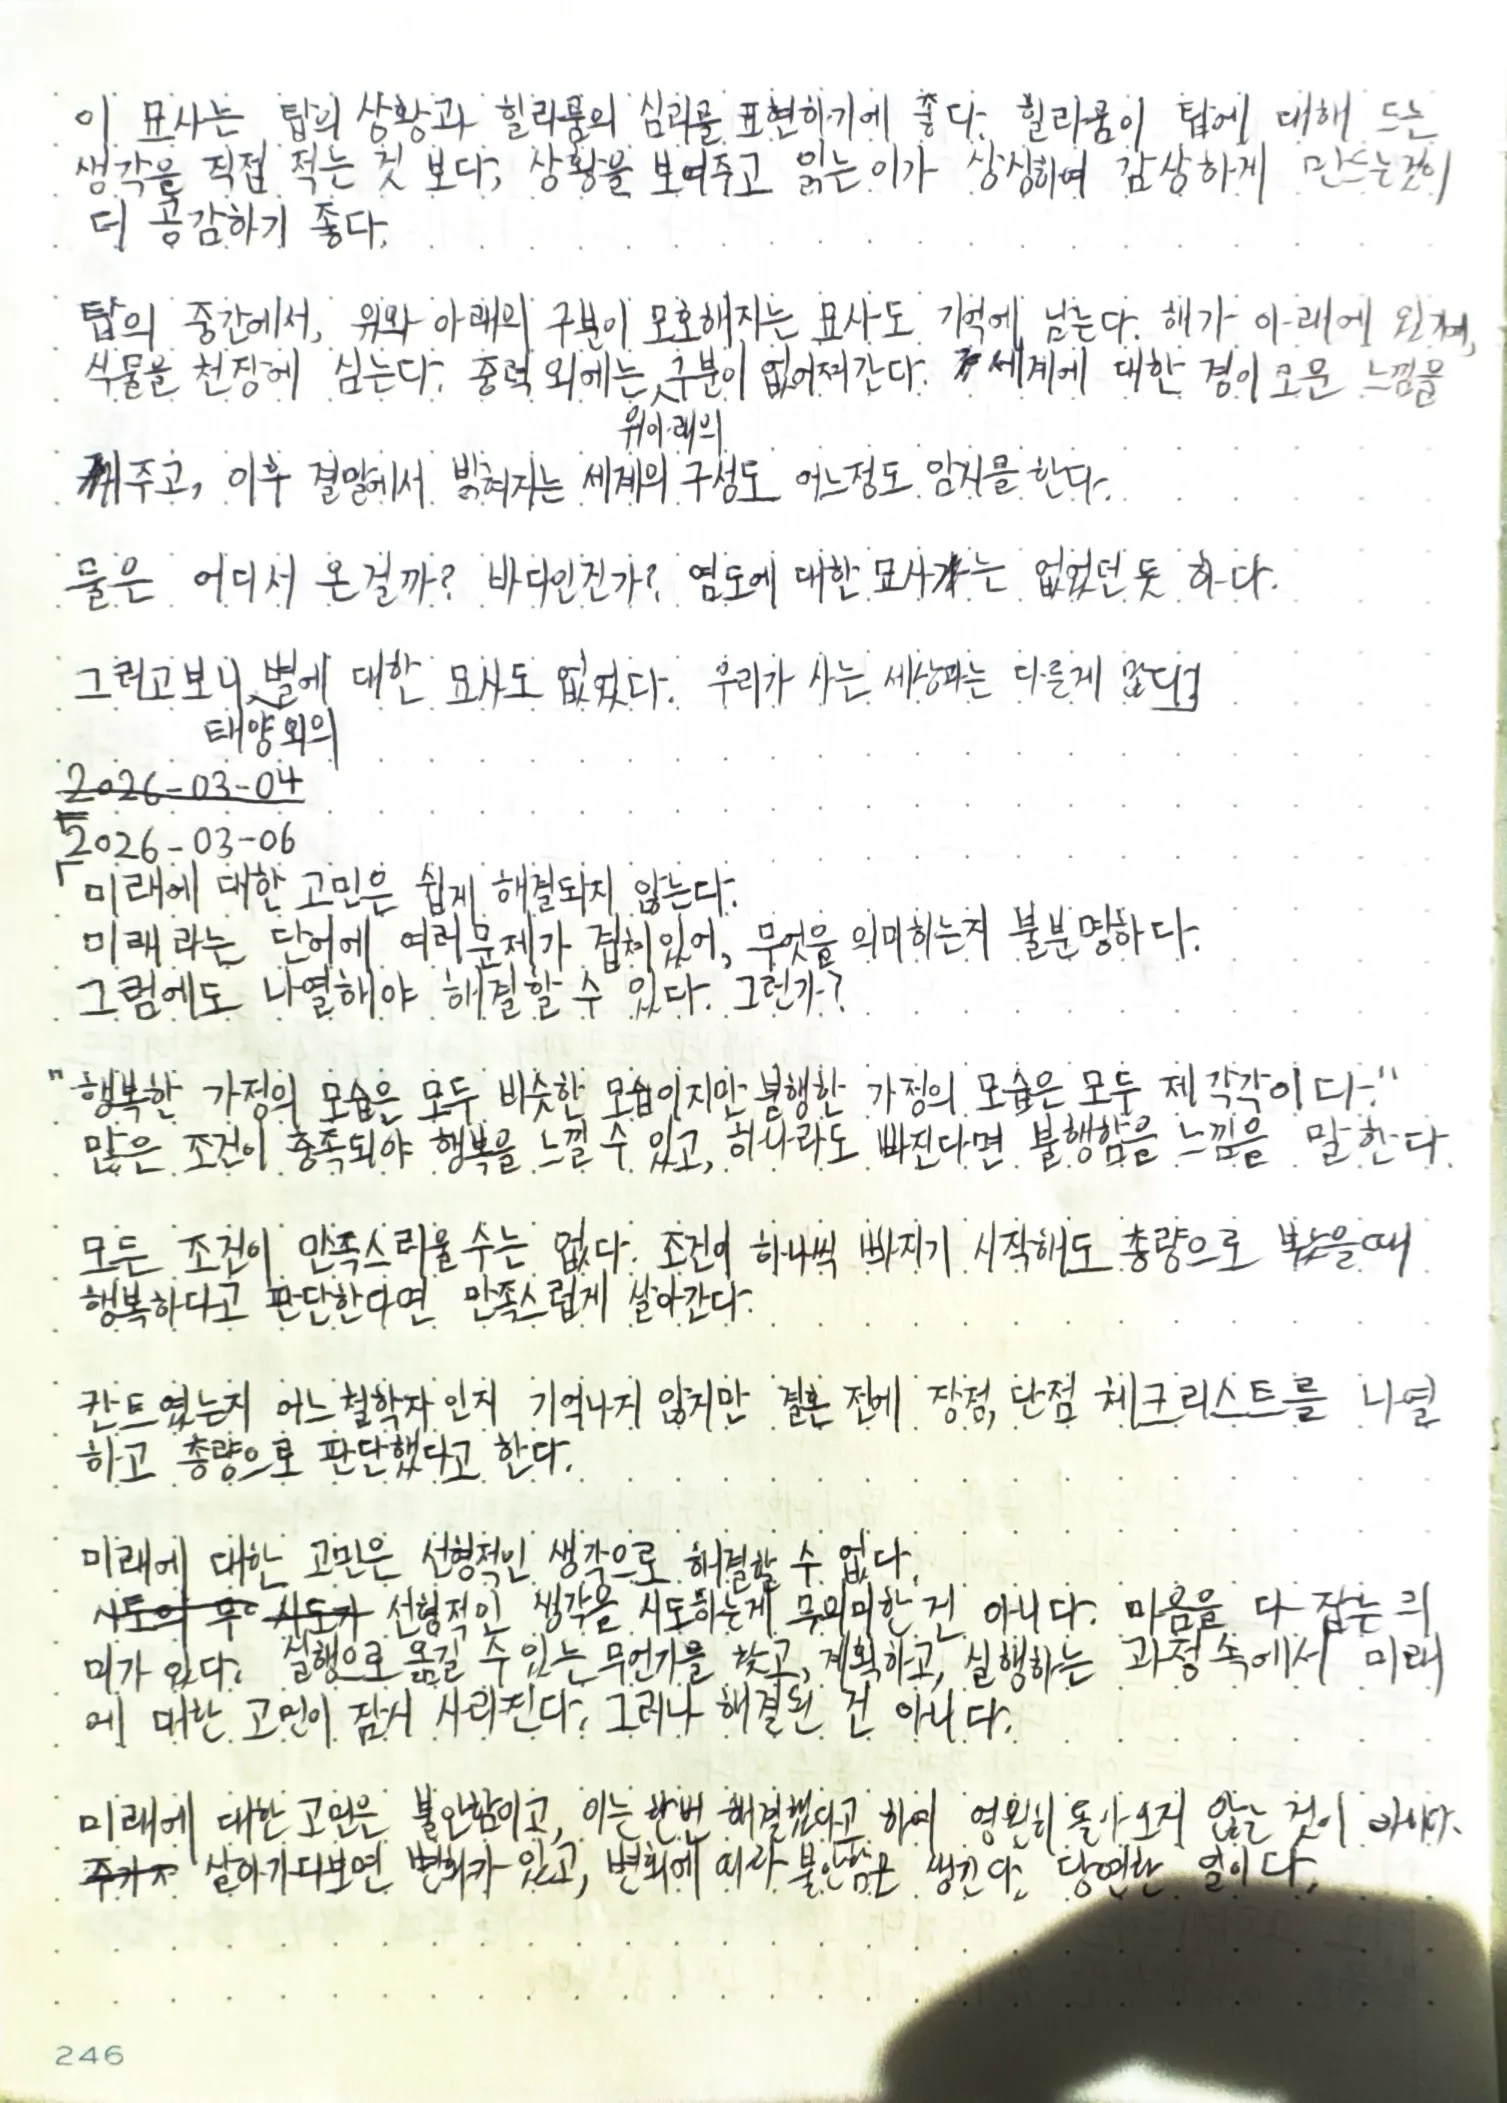 이 묘사는 탑의 상황과 힐라룸의 심리를 표현하기에 좋다. 힐라룸이 탑에 대해 드는
생각을 직접 적는 것 보다, 상황을 보여주고 읽는이가 상상하여 감상하게 만드는것이
더 공감하기 좋다.
탑의 중간에서, 위와 아래의 구분이 모호해지는 묘사도 기억에 남는다. 해가 아래에 있으며,
식물을 천장에 심는다. 중력 외에는 구분이 없어져간다. 세계에 대한 경이로운 느낌을
위아래의
깨주고, 이후 결말에서 밝혀지는 세계의 구성도 어느정도 암시를 한다.
물은 어디서 온걸까? 바다인진가? 염도에 대한 묘사는 없었던 듯 하다.
그러고보니 별에 대한 묘사도 없었다. 우리가 사는 세상과는 다른게 많다
태양외의
2026-03-04
2026-03-06
미래에 대한 고민은 쉽게 해결되지 않는다.
미래라는 단어에 여러문제가 겹쳐있어, 무엇을 의미하는지 불분명하다.
그럼에도 나열해야 해결할 수 있다. 그런가?
"행복한 가정의 모습은 모두 비슷한 모습이지만 불행한 가정의 모습은 모두 제각각이다."
많은 조건이 충족되야 행복을 느낄 수 있고, 하나라도 빠진다면 불행함을 느낌을 말한다.
모든 조건이 만족스러울수는 없다. 조건이 하나씩 빠지기 시작해도 총량으로 봤을때
행복하다고 판단한다면 만족스럽게 살아간다.
칸트였는지 어느철학자인지 기억나지 않지만 결혼 전에 장점, 단점 체크리스트를 나열
하고 총량으로 판단했다고 한다.
미래에 대한 고민은 선형적인 생각으로 해결할 수 없다.
시도의 무 시도가 선형적인 생각을 시도하는게 무의미한 건 아니다. 마음을 다잡는 의
미가 있다. 실행으로 옮길 수 있는 무언가를 찾고, 계획하고, 실행하는 과정속에서 미래
에 대한 고민이 잠시 사라진다. 그러나 해결된 건 아니다.
미래에 대한 고민은 불안함이고, 이는 한번 해결했다고 하여 영원히 돌아오지 않는 것이 아니다.
살아가다보면 변화가 있고, 변화에 따라 불안함은 생긴다. 당연한 일이다.
246